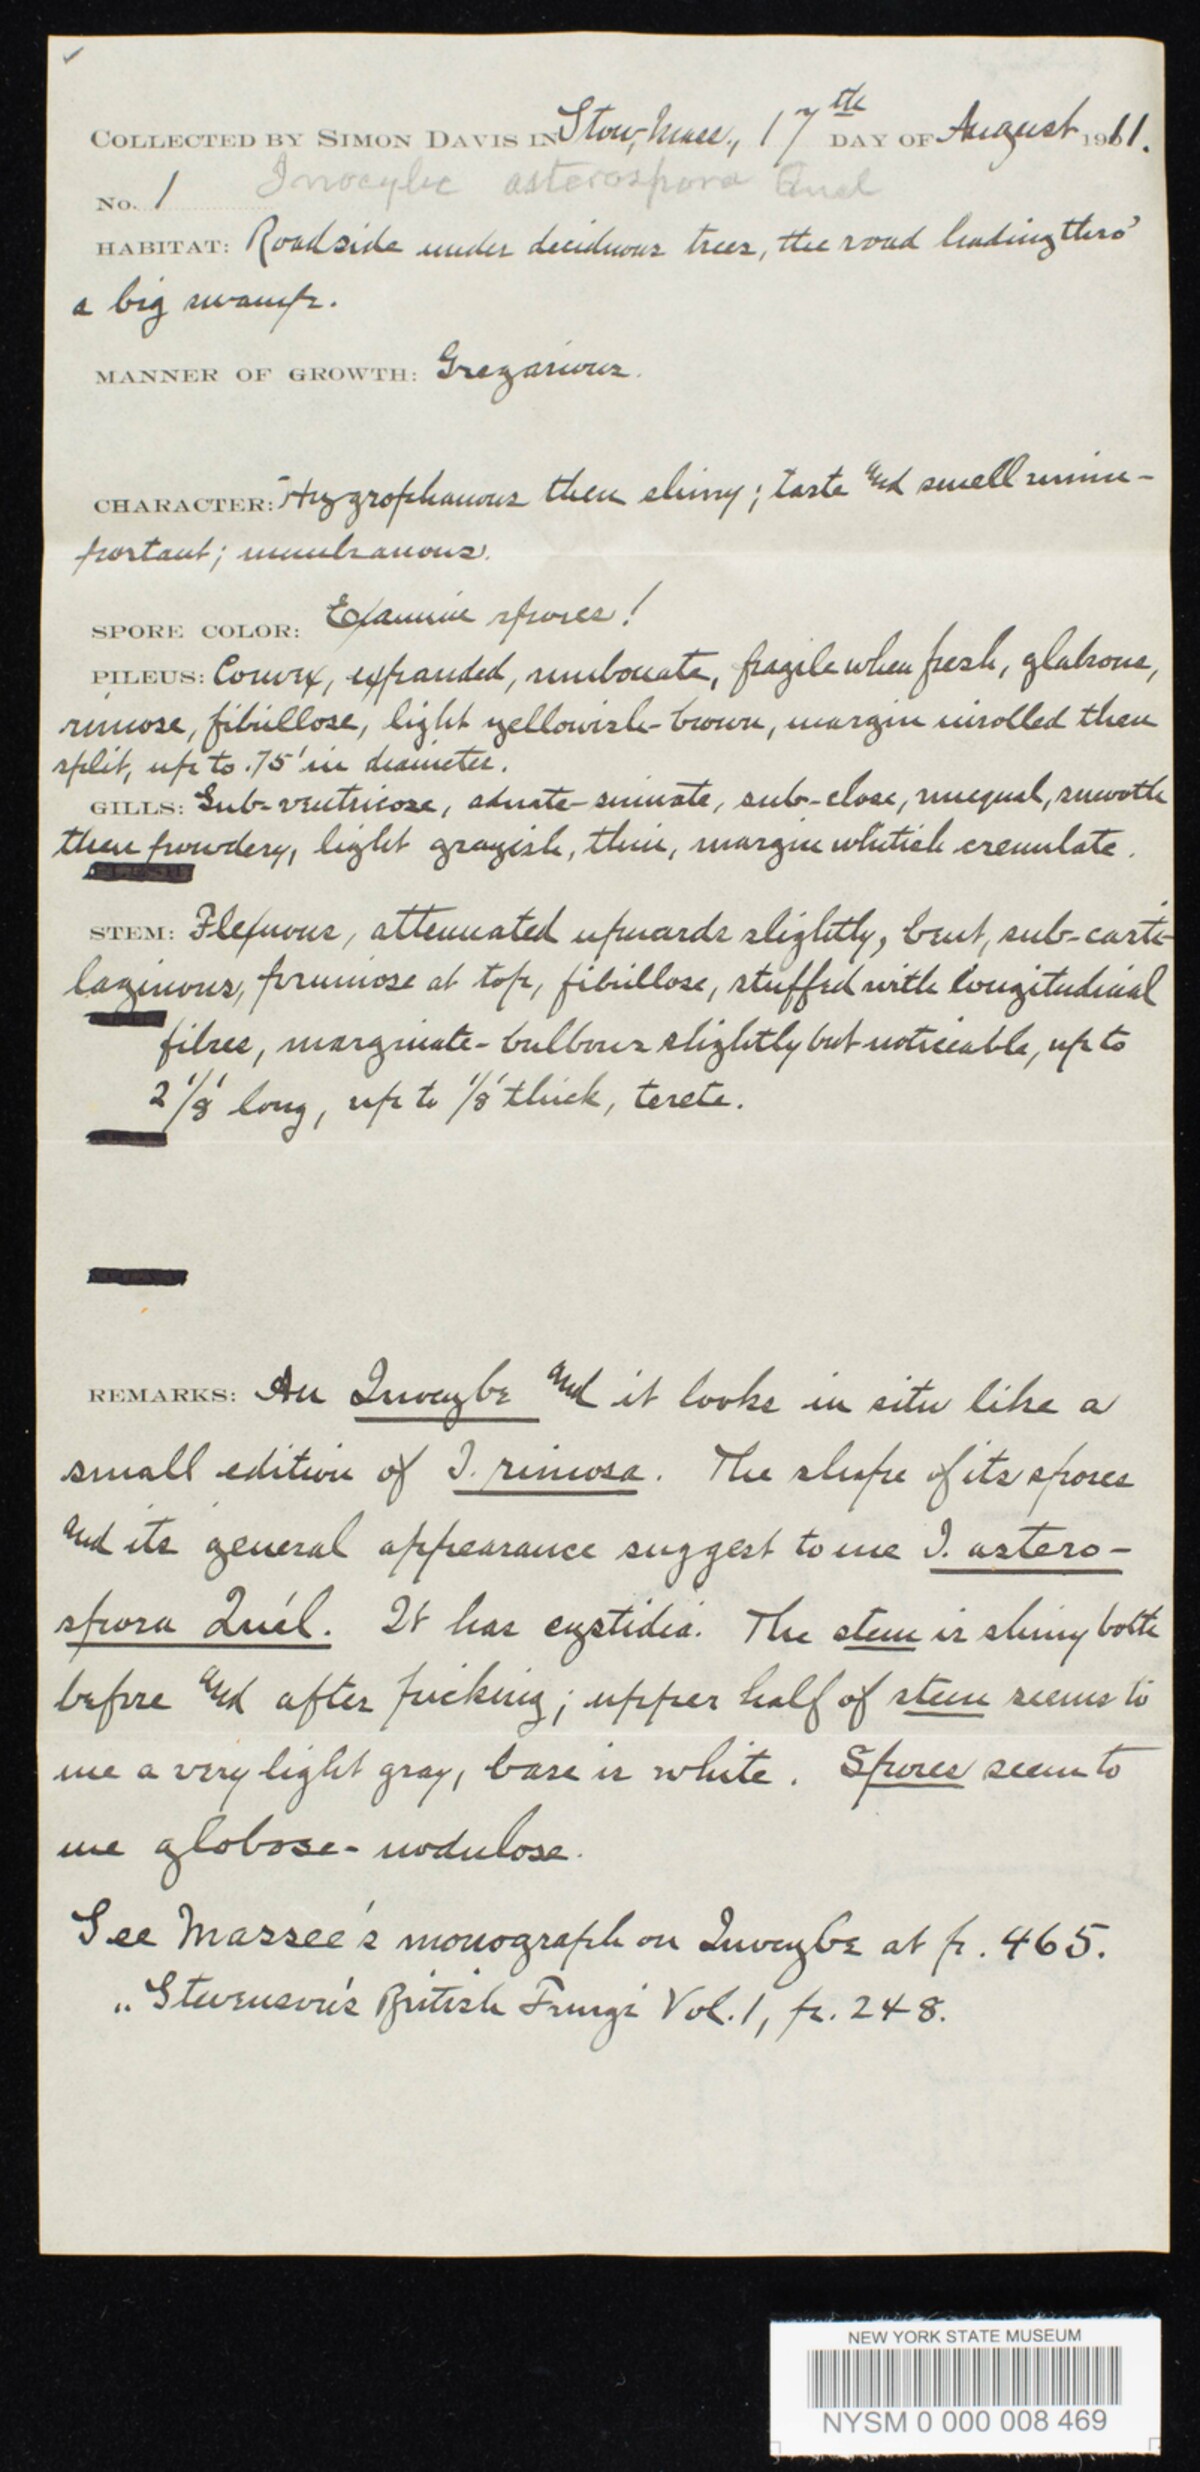 COLLECTED BY SIMON DAVIS IN Stow, Mass., 17th DAY OF August 1911.
No. 1 Inocybe asterospora Quel
HABITAT: Roadside under deciduous trees, the road leading thro'
a big swamp.
MANNER OF GROWTH: Gregarious.
CHARACTER: Hygrophanous then shiny; taste and smell unim-
portant; membranous.
SPORE COLOR: Examine spores!
PILEUS: Convex, expanded, umbonate, fragile when fresh, glabrous,
rimose, fibrillose, light yellowish-brown, margin inrolled then
split, up to .75' in diameter.
GILLS: Sub-ventricose, adnate-sinuate, sub-close, unequal, smooth
then powdery, light grayish, thin, margin whitish crenulate.
STEM: Flexuous, attenuated upwards slightly, bent, sub-carti-
laginous, pruinose at top, fibrillose, stuffed with longitudinal
fibres, marginate-bulbous slightly but noticeable, up to
2 1/8' long, up to 1/8' thick, terete.
REMARKS: An Inocybe and it looks in situ like a
small edition of I. rimosa. The shape of its spores
and its general appearance suggest to me I. astero-
spora Quél. It has cystidia. The stem is shiny both
before and after picking; upper half of stem seems to
me a very light gray, base is white. Spores seem to
me globose-nodulose.
See Massee's monograph on Inocybe at p. 465.
„ Stevenson's British Fungi Vol. 1, p. 248.
NEW YORK STATE MUSEUM
NYSM 0 000 008 469